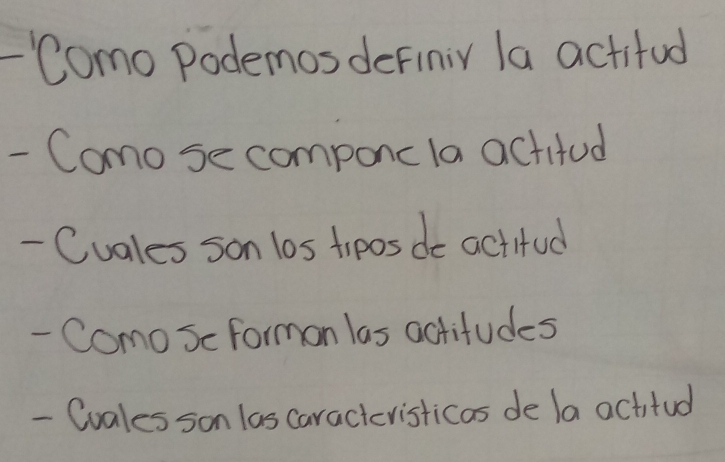 - Como podemos definir la actitud
- Como se compone la actitud
- Cuales son los tipos de actitud
- Como se forman las actitudes
- Cuales son las caracteristicas de la actitud